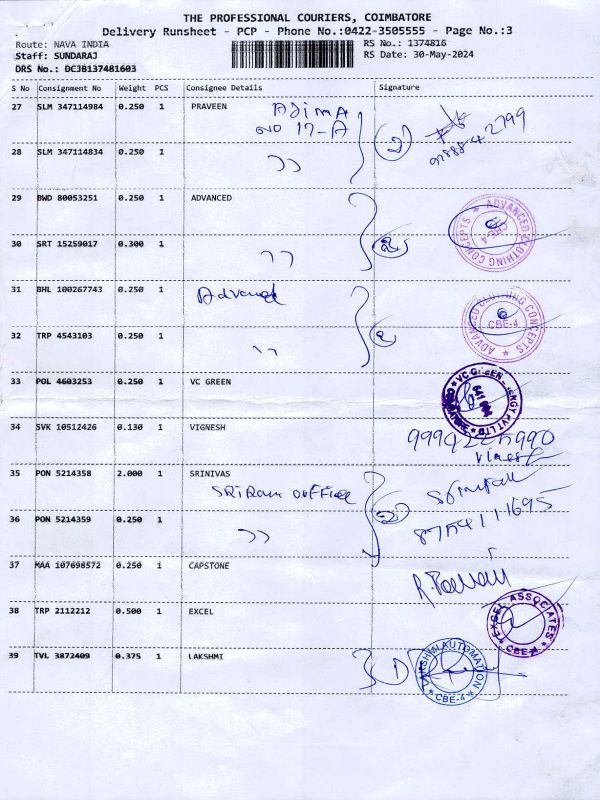 THE PROFESSIONAL COURIERS, COIMBATORE
Delivery Runsheet - PCP - Phone No.:0422-3505555 - Page No.:3
Route: NAVA INDIA
RS No.: 1374816
Staff: SUNDARAJ
RS Date: 30-May-2024
DRS No.: DCJB137481603
S No Consignment No Weight PCS Consignee Details Signature
27 SLM 347114984 0.250 1 PRAVEEN
AJIMA
NO 17-A
28 SLM 347114834 0.250 1
29 BWD 80053251 0.250 1 ADVANCED
ADVANCED CLOTHING CONCEPTS
CBE-4
30 SRT 15259017 0.300 1
31 BHL 100267743 0.250 1
Advanced
ADVANCED CLOTHING CONCEPTS
CBE-4
32 TRP 4543103 0.250 1
33 POL 4603253 0.250 1 VC GREEN
VC GREEN ENERGY PVT LTD
34 SVK 10512426 0.130 1 VIGNESH
35 PON 5214358 2.000 1 SRINIVAS
SRIRAM OFFICE
36 PON 5214359 0.250 1
37 MAA 107698572 0.250 1 CAPSTONE
38 TRP 2112212 0.500 1 EXCEL
EXCEL ASSOCIATES
CBE-4
39 TVL 3872409 0.375 1 LAKSHMI
LAKSHMI AUTOMATION
CBE-4